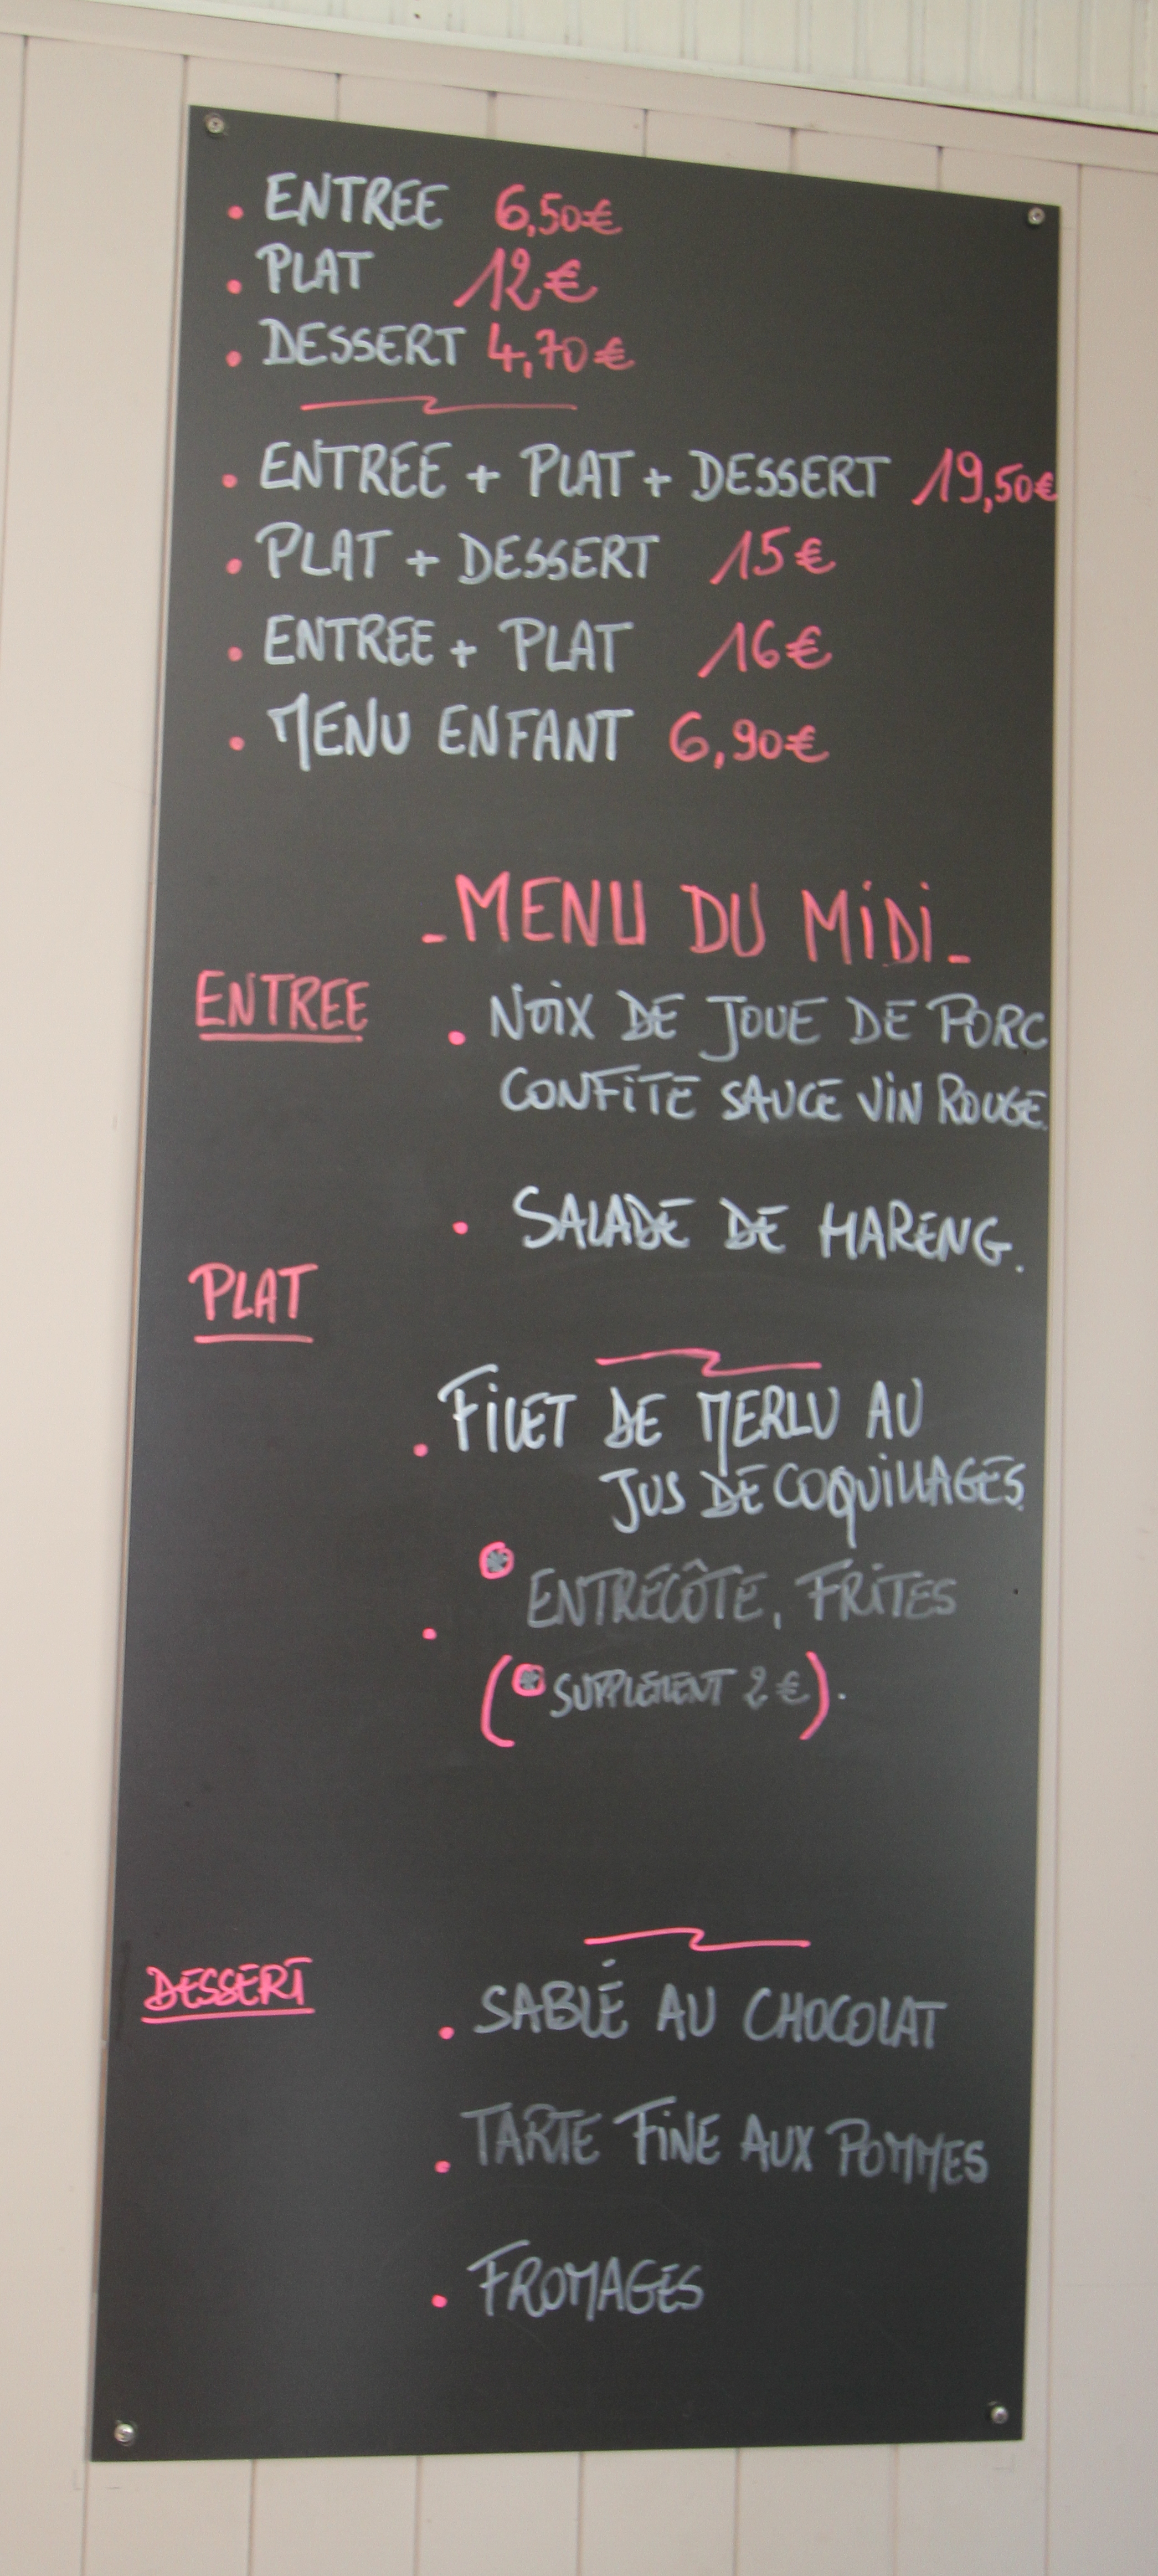 . ENTREE 6,50€
. PLAT 12€
. DESSERT 4,70€
. ENTREE + PLAT + DESSERT 19,50€
. PLAT + DESSERT 15€
. ENTREE + PLAT 16€
. MENU ENFANT 6,90€
- MENU DU MIDI -
ENTREE
. NOIX DE JOUE DE PORC
CONFITE SAUCE VIN ROUGE.
. SALADE DE HARENG.
PLAT
. FILET DE MERLU AU
JUS DE COQUILLAGES.
* ENTRECÔTE, FRITES
(* SUPPLEMENT 2 €).
DESSERT
. SABLÉ AU CHOCOLAT
. TARTE FINE AUX POMMES
. FROMAGES